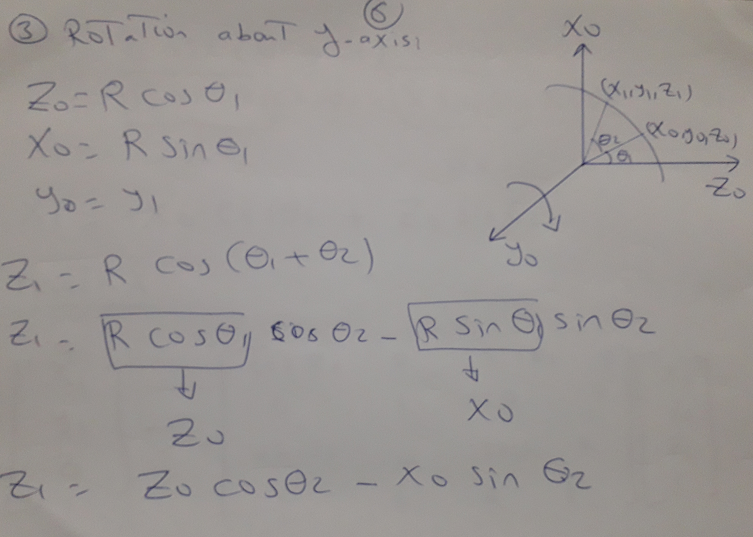 ⑥
③ Rotation about y-axis:
Z0 = R cos θ1
X0 = R sin θ1
y0 = y1
X0
(x1, y1, z1)
(x0, y0, z0)
θ2
θ1
Z0
y0
Z1 = R cos (θ1 + θ2)
Z1 = R cos θ1 cos θ2 - R sin θ1 sin θ2
Z0
X0
Z1 = Z0 cos θ2 - X0 sin θ2